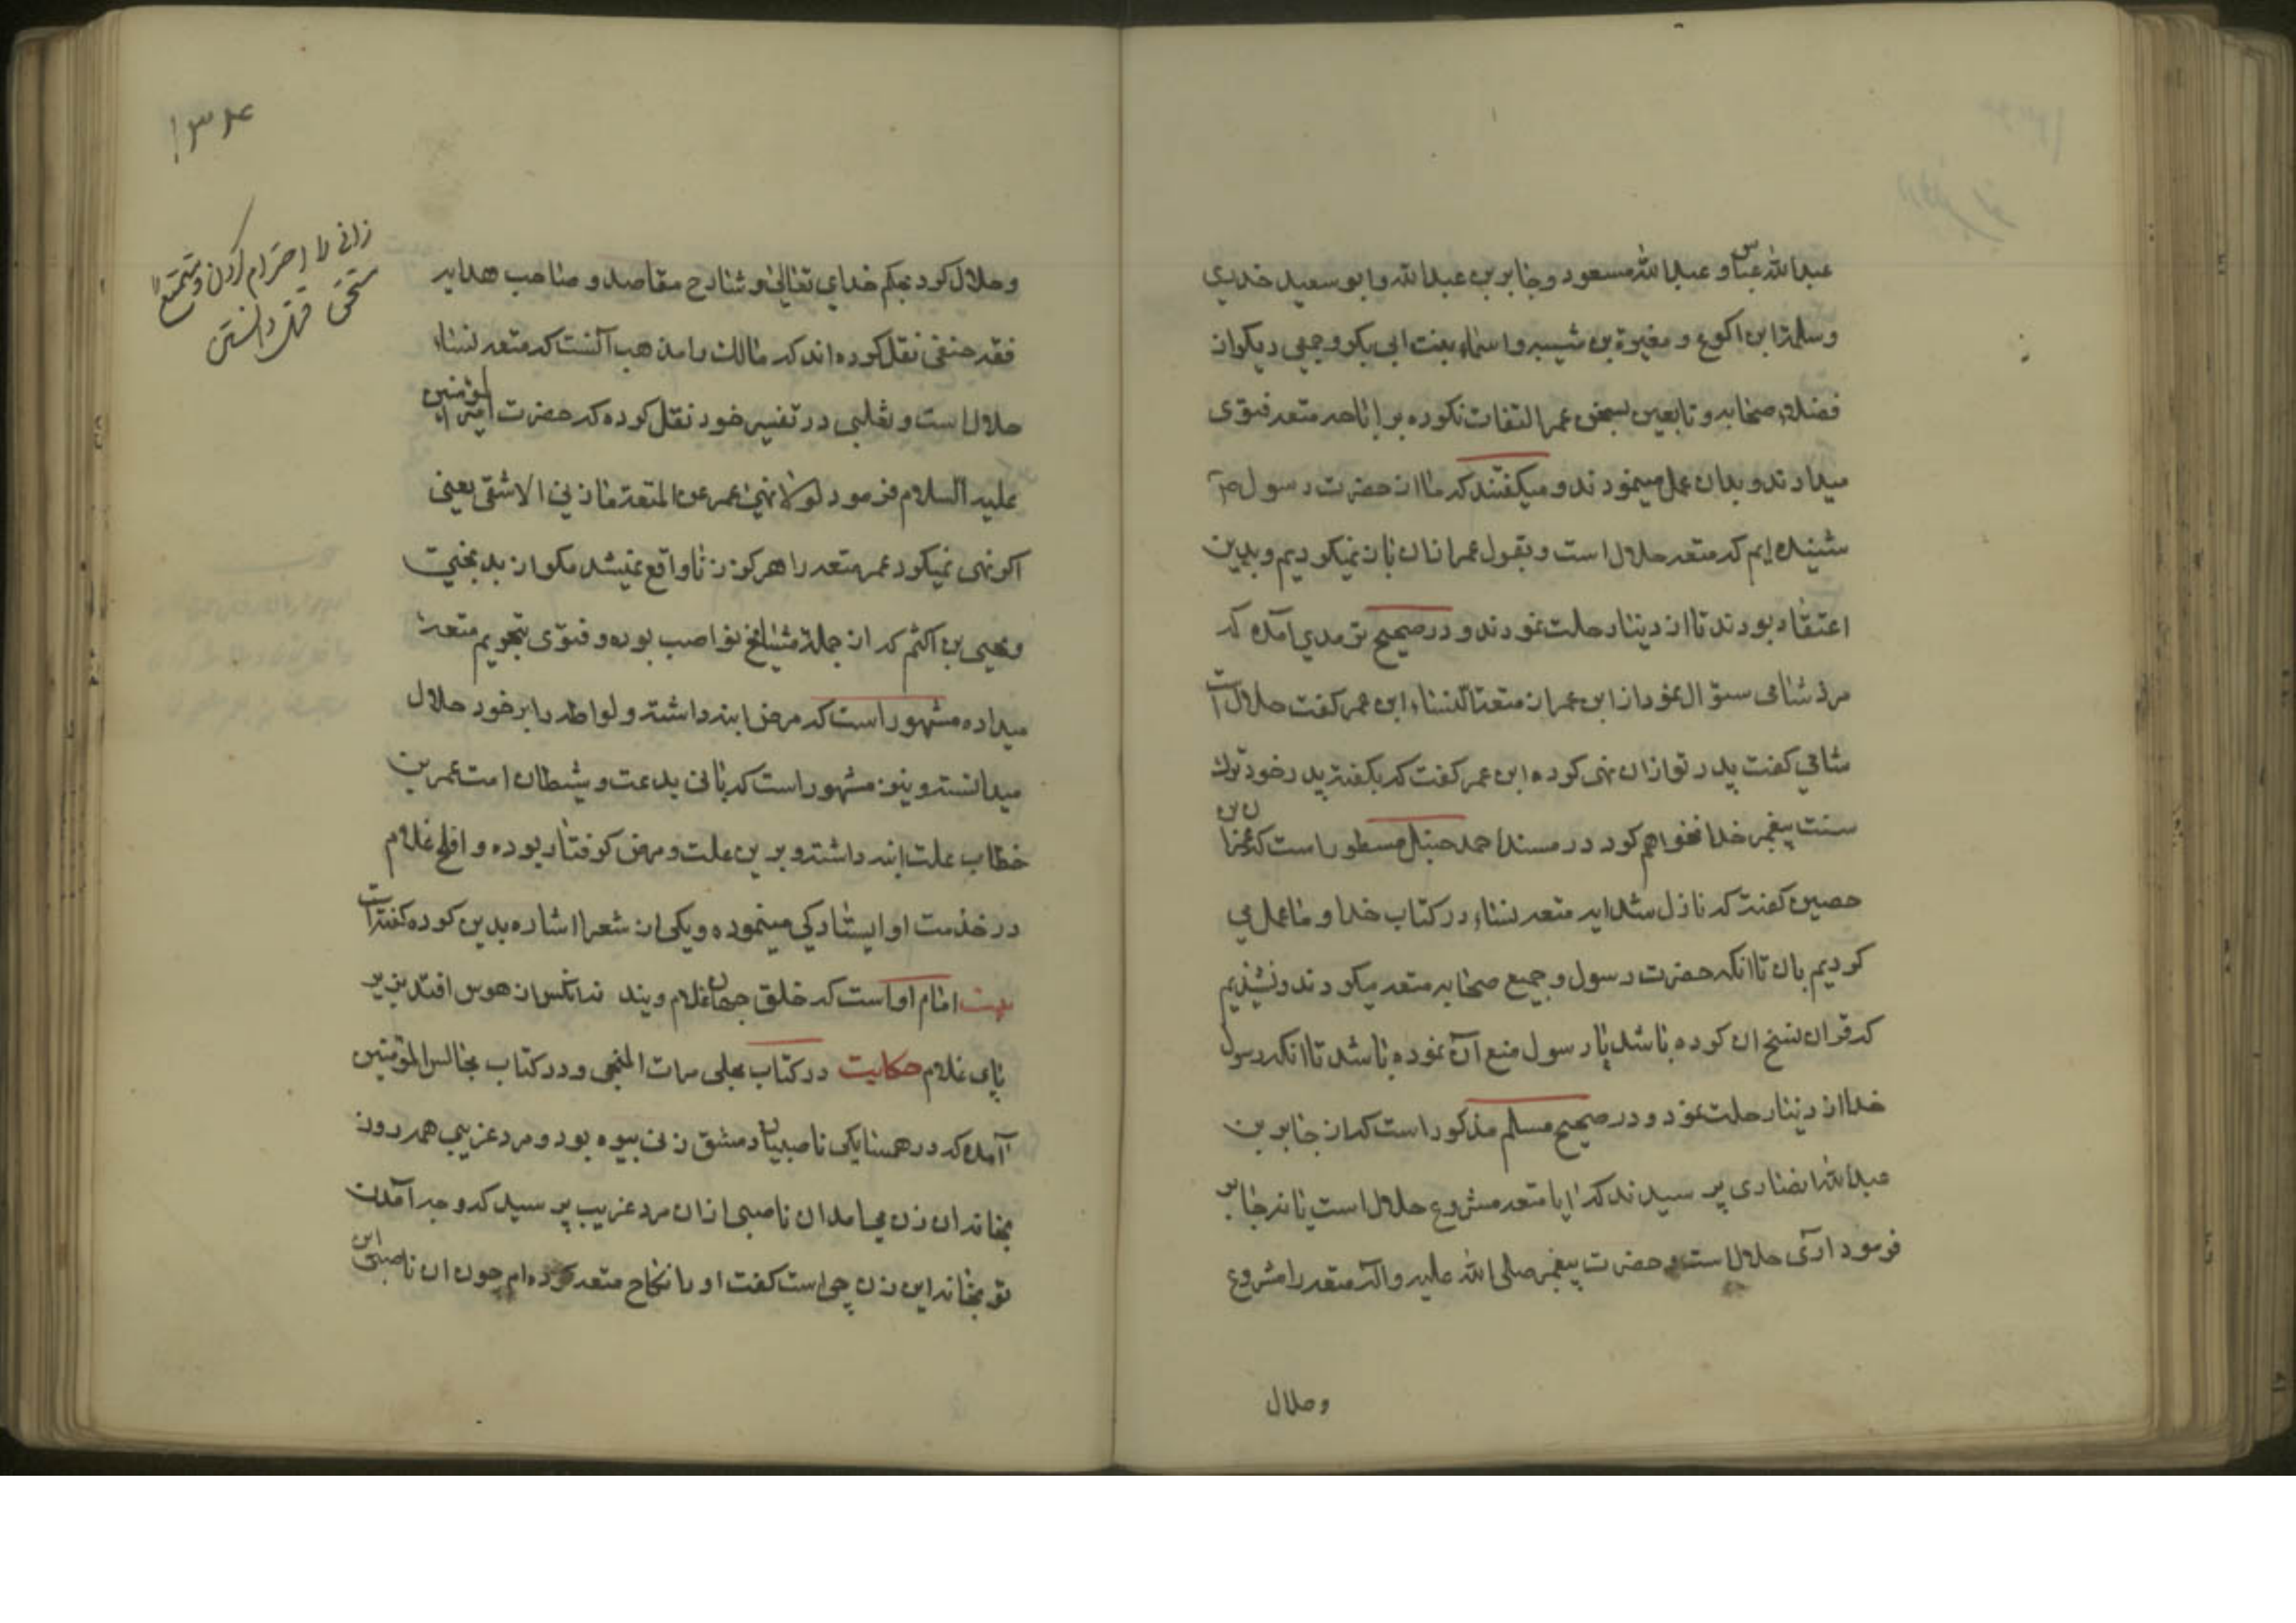 عبدالله عباس و عبدالله مسعود و جابر بن عبدالله و ابو سعید خدری
وسلمة ابن اکوع و مغیرة بن شیبه و اسماء بنت ابی بکر و جمعی دیکر از
فضلاء صحابه و تابعین بسخن عمر التفات نکرده بر اباحه متعه فتوی
میدادند و بدان عمل مینمودند و میکفتند که ما از حضرت رسول ص
شنیده ایم که متعه حلال است و بقول عمر از ان باز نمیکردیم و بدین
اعتقاد بودند تا از دنیا رحلت نمودند و در صحیح ترمدی آمده که
مرد شامی سؤال نمود از ابن عمر از متعة النساء ابن عمر کفت حلال است
شامی کفت پدر تو از ان نهی کرده ابن عمر کفت که بکفته پدر خود ترک
سنت پیغمبر خدا نخواهم کرد در مسند احمد حنبل مسطور است که عمران بن
حصین کفت که نازل شد ایه متعه نساء در کتاب خدا و ما عمل می
کردیم بان تا انکه حضرت رسول و جمیع صحابه متعه میکردند و نشنیدیم
که قران نسخ ان کرده باشد یا رسول منع آن نموده باشد تا انکه رسول
خدا از دنیا رحلت نمود و در صحیح مسلم مذکور است که از جابر بن
عبدالله انصاری پرسیدند که ایا متعه مشروع حلال است یا نه جابر
فرمود اری حلال است و حضرت پیغمبر صلی الله علیه و آله متعه را مشروع
وحلال
۱۳۴
زانی را احترام کردن و متمتع را
مستحق قتل دانستن
وحلال کرد بحکم خدای تعالی و شارح مقاصد و صاحب هدایه
فقه حنفی نقل کرده اند که مالک را مذهب آنست که متعه نساء
حلال است و ثعلبی در تفسیر خود نقل کرده که حضرت امیر المؤمنین
علیه السلام فرمود لولا نهی عمر عن المتعة ما زنی الا شقی یعنی
اکر نهی نمیکرد عمر متعه را هرکز زنا واقع نمیشد مکر از بدبختی
و یحیی بن اکثم که از جملة مشایخ نواصب بوده و فتوی بتحریم متعه
میداده مشهور است که مرض ابنه داشته و لواطه را بر خود حلال
میدانسته و نیز مشهور است که بانی بدعت و شیطان امت عمر بن
خطاب علت ابنه داشته و بدین علت و مرض کرفتار بوده و افلح غلام
در خذمت او ایستادکی مینموده و یکی از شعرا اشاره بدین کرده کفته است
بیت امام او است که خلق جهان غلام ویند نه انکس از هوس افتد بزیر
پای غلام حکایت در کتاب مجلی مرات المنجی و در کتاب مجالس المؤمنین
آمده که در همسایکی ناصبیان دمشق زنی بیوه بود و مرد غریبی هر روز
بخانه ان زن می امد ان ناصبی از ان مرد غریب پرسید که وجه آمدن
تو بخانه این زن چی است کفت او را نکاح متعه کرده ام چون ان ناصبی این